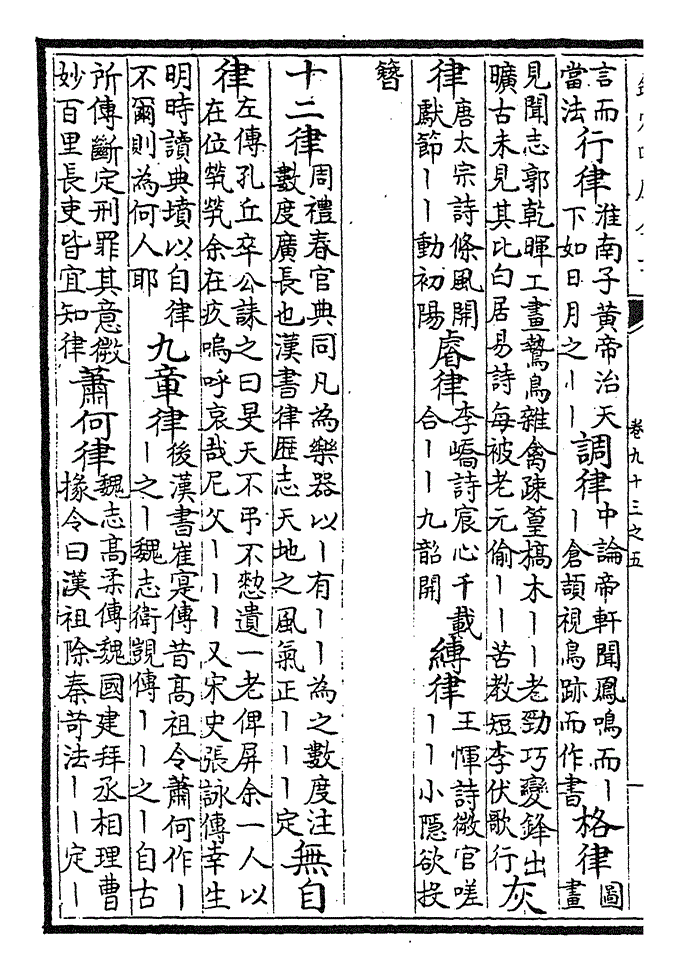 卷九十三之五
言而當法行律淮南子黃帝治天下如日月之丨丨調律中論帝軒聞鳳鳴而丨丨倉頡視鳥跡而作書格律圖畫
見聞志郭乾暉工畫鷙鳥雜禽疎篁槁木丨丨老勁巧變鋒出曠古未見其比白居易詩每被老元偷丨丨苦教短李伏歌行灰
律唐太宗詩條風開獻節丨丨動初陽睿律李嶠詩宸心千載合丨丨九韶開縛律王惲詩微官嗟丨丨小隱欲投
簪
十二律周禮春官典同凡為樂器以丨有丨丨為之數度注數度廣長也漢書律歷志天地之風氣正丨丨丨定無自
律左傳孔丘卒公誄之曰旻天不弔不憖遺一老俾屏余一人以在位煢煢余在疚嗚呼哀哉尼父丨丨丨又宋史張詠傳幸生
明時讀典墳以自律不爾則為何人耶九章律後漢書崔寔傳昔高祖令蕭何作丨丨之丨魏志衛覬傳丨丨之丨自古
所傳斷定刑罪其意微妙百里長吏皆宜知律蕭何律魏志高柔傳魏國建拜丞相理曹掾令曰漢祖除秦苛法丨丨定丨